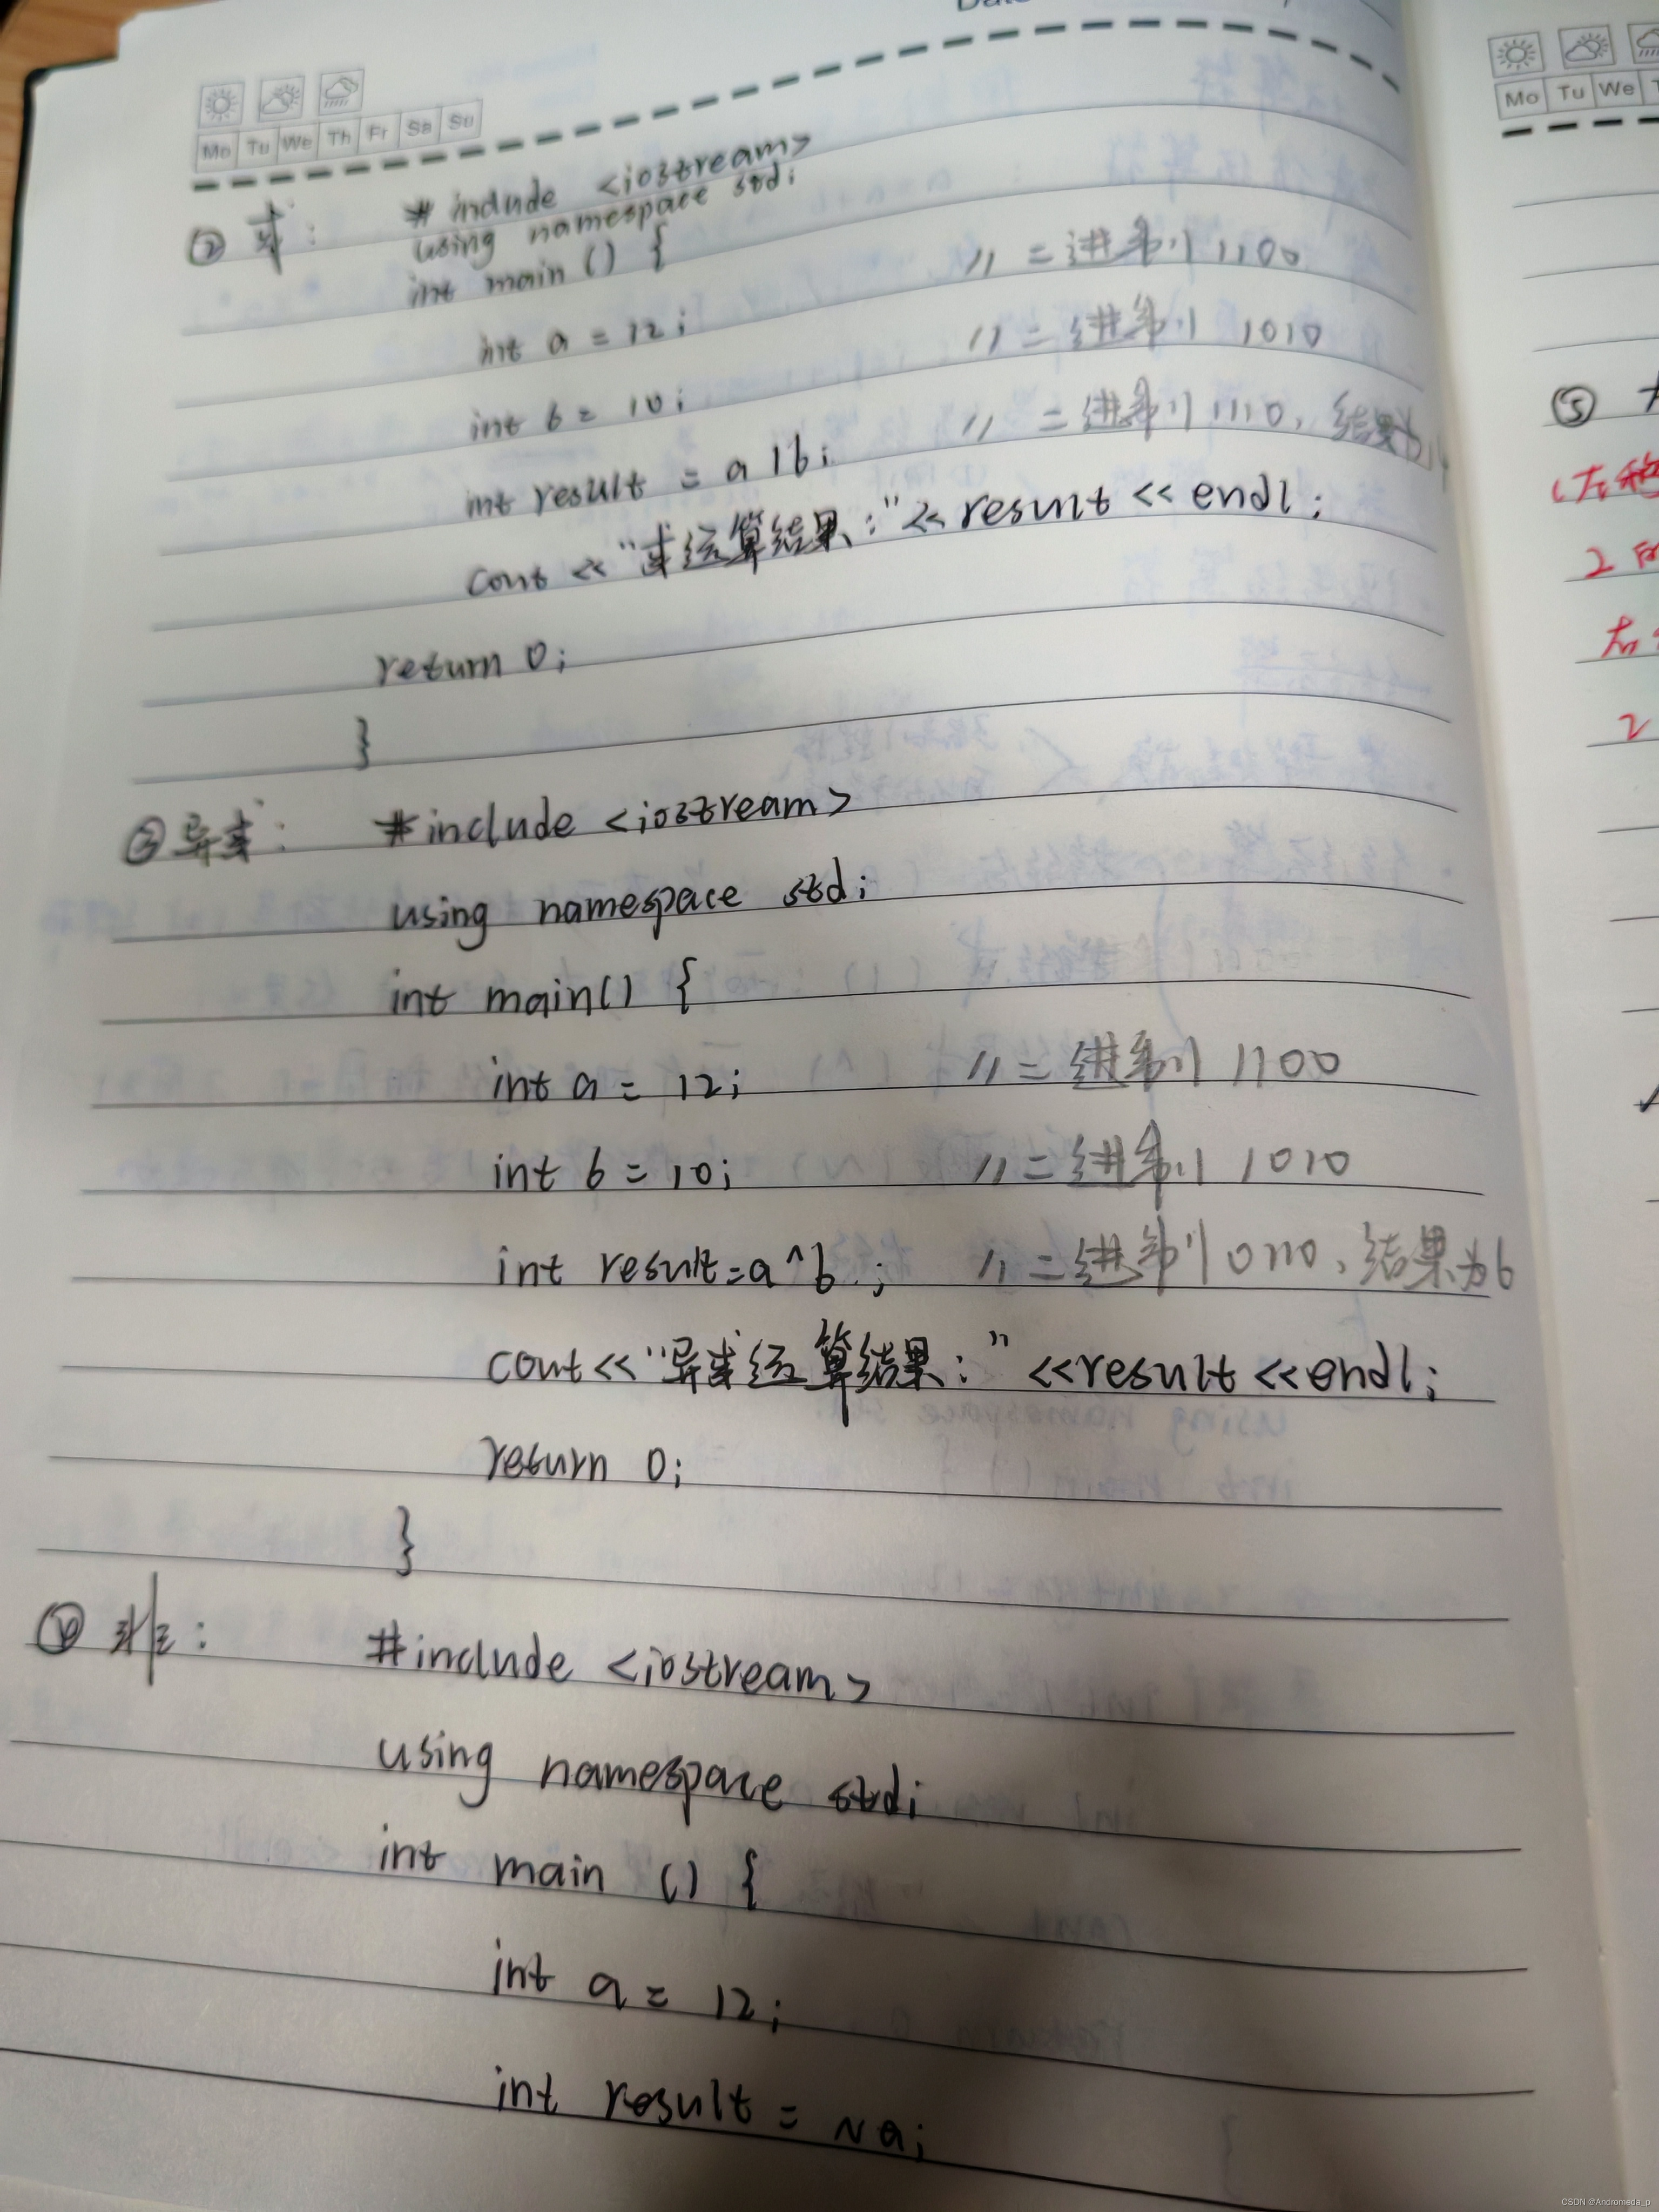 Mo Tu We Th Fr Sa Su
② 或： # include <iostream>
using namespace std;
int main () {
int a = 12; // 二进制 1100
int b = 10; // 二进制 1010
int result = a | b; // 二进制 1110，结果为14
cout << "或运算结果：" << result << endl;
return 0;
}
③ 异或： #include <iostream>
using namespace std;
int main() {
int a = 12; // 二进制 1100
int b = 10; // 二进制 1010
int result=a^b ; // 二进制 0110，结果为6
cout<<"异或运算结果：" <<result <<endl;
return 0;
}
④ 非： #include <iostream>
using namespace std;
int main () {
int a = 12;
int result = ~a;
Mo Tu We
⑤
2
2
CSDN @Andromeda_p